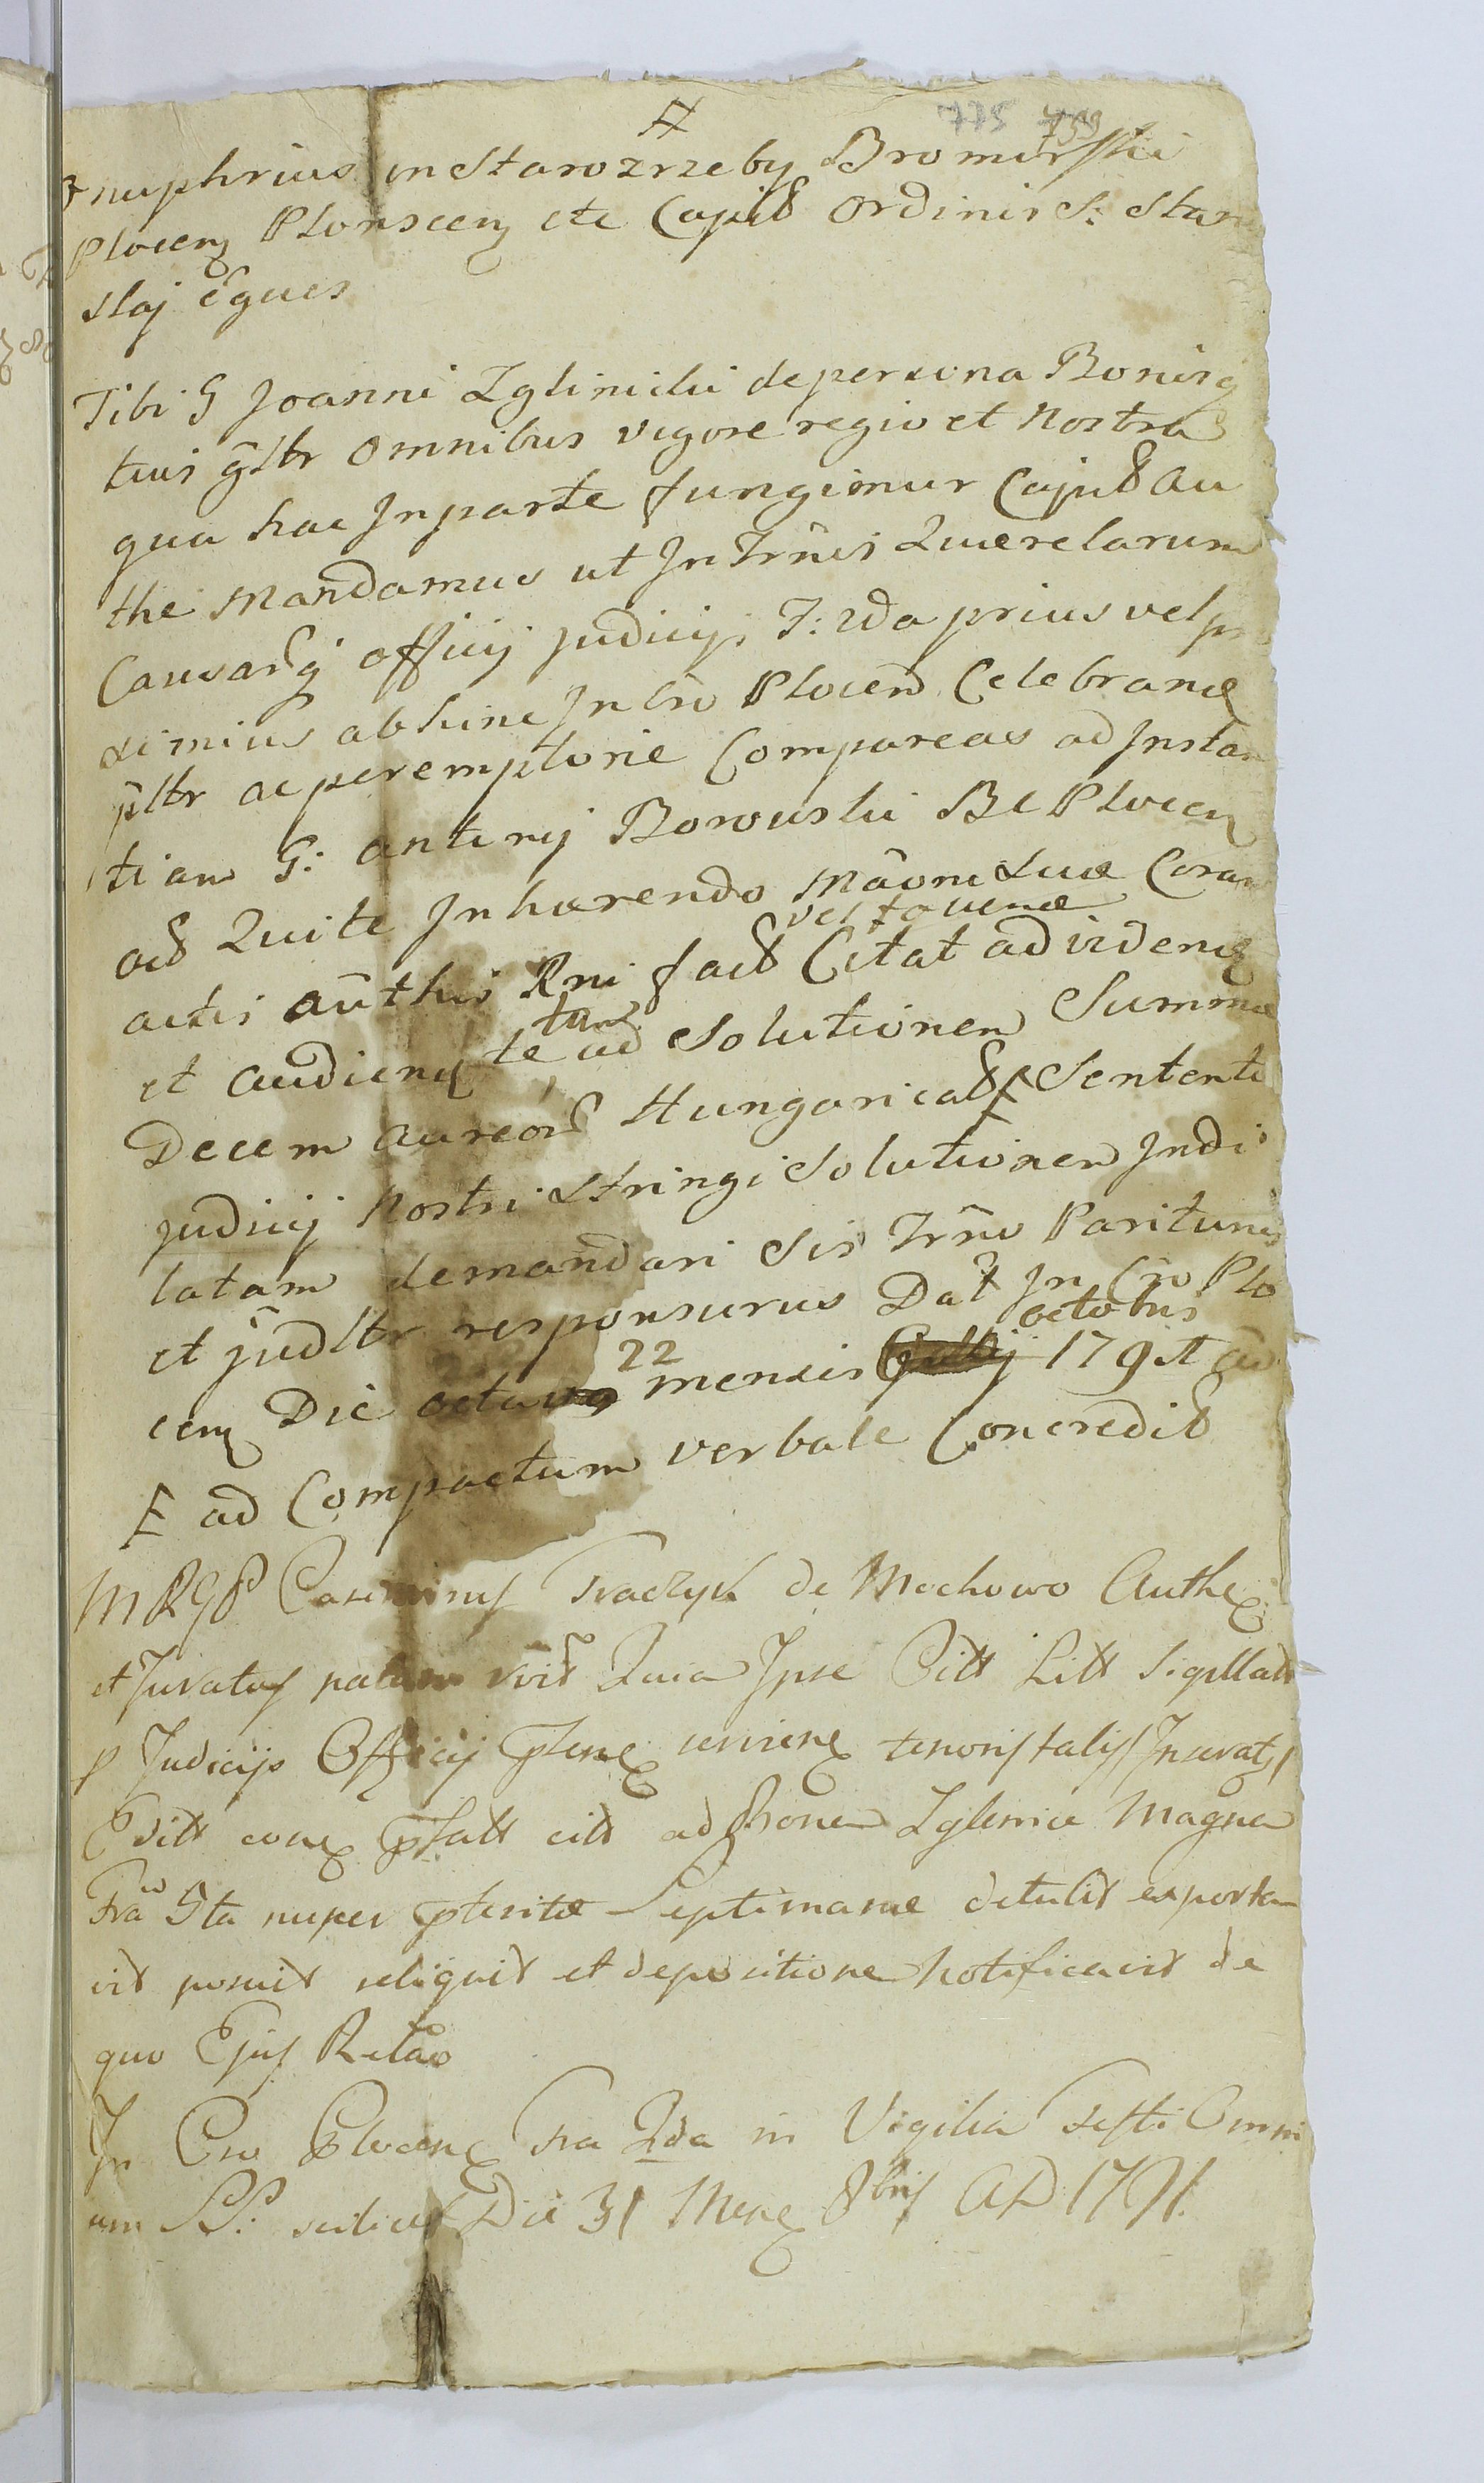 775 759
Onuphrius in Starozrzeby Bromirski
Plocen Plonscen etc Capits Ordinis S: Stani
slaj Eques
Tibi G Joanni Zglinicki de persona Bonisq
tuis gnltr omnibus vigore regio et Nostra
qua hac In parte fungimur Capits Au
the Mandamus ut In Trnis Querelarum
Causarq officij judicijs F: 2da prius vel pro
ximius abhinc In Cro Plocen Celebrand
pltr ac peremptorie Compareas ad Instan
tiam G: Antonij Borowski BC Plocen
acts Quite Inhærendo Maõni Suæ Coram
actis aũthis Rni facts Citat ad viden
vel
et audien te ad Solutionem Summæ
tum
Decem aureor Hungaricals Sententi
judicij Nostri Stringi Solutionem Indi
latam demandari Sis Trno Pariturus
et judltr responsurus Dat In Cro Plo
cen Die 22 mensis octobris 1791 A
E ad Compactum verbale Concredits
MRGP Casimirus Tkaczyk de Mochowo Authen
et Juratus palam Quia Ipse Citt Litt Sigillatt
p Judicijs Officij tenoris talis
Editt citt ad Bona Zglenice Magna
Fra 5ta nuper pterite Septimanæ detulit exporta
vit posuit reliquit et depositione notificavit de
quo Ejus Retão
In Cro Plocen Fra 2da in Vigilia Festi Omni
um SS: scilicet Die 31 Mens 8bris AD 1791